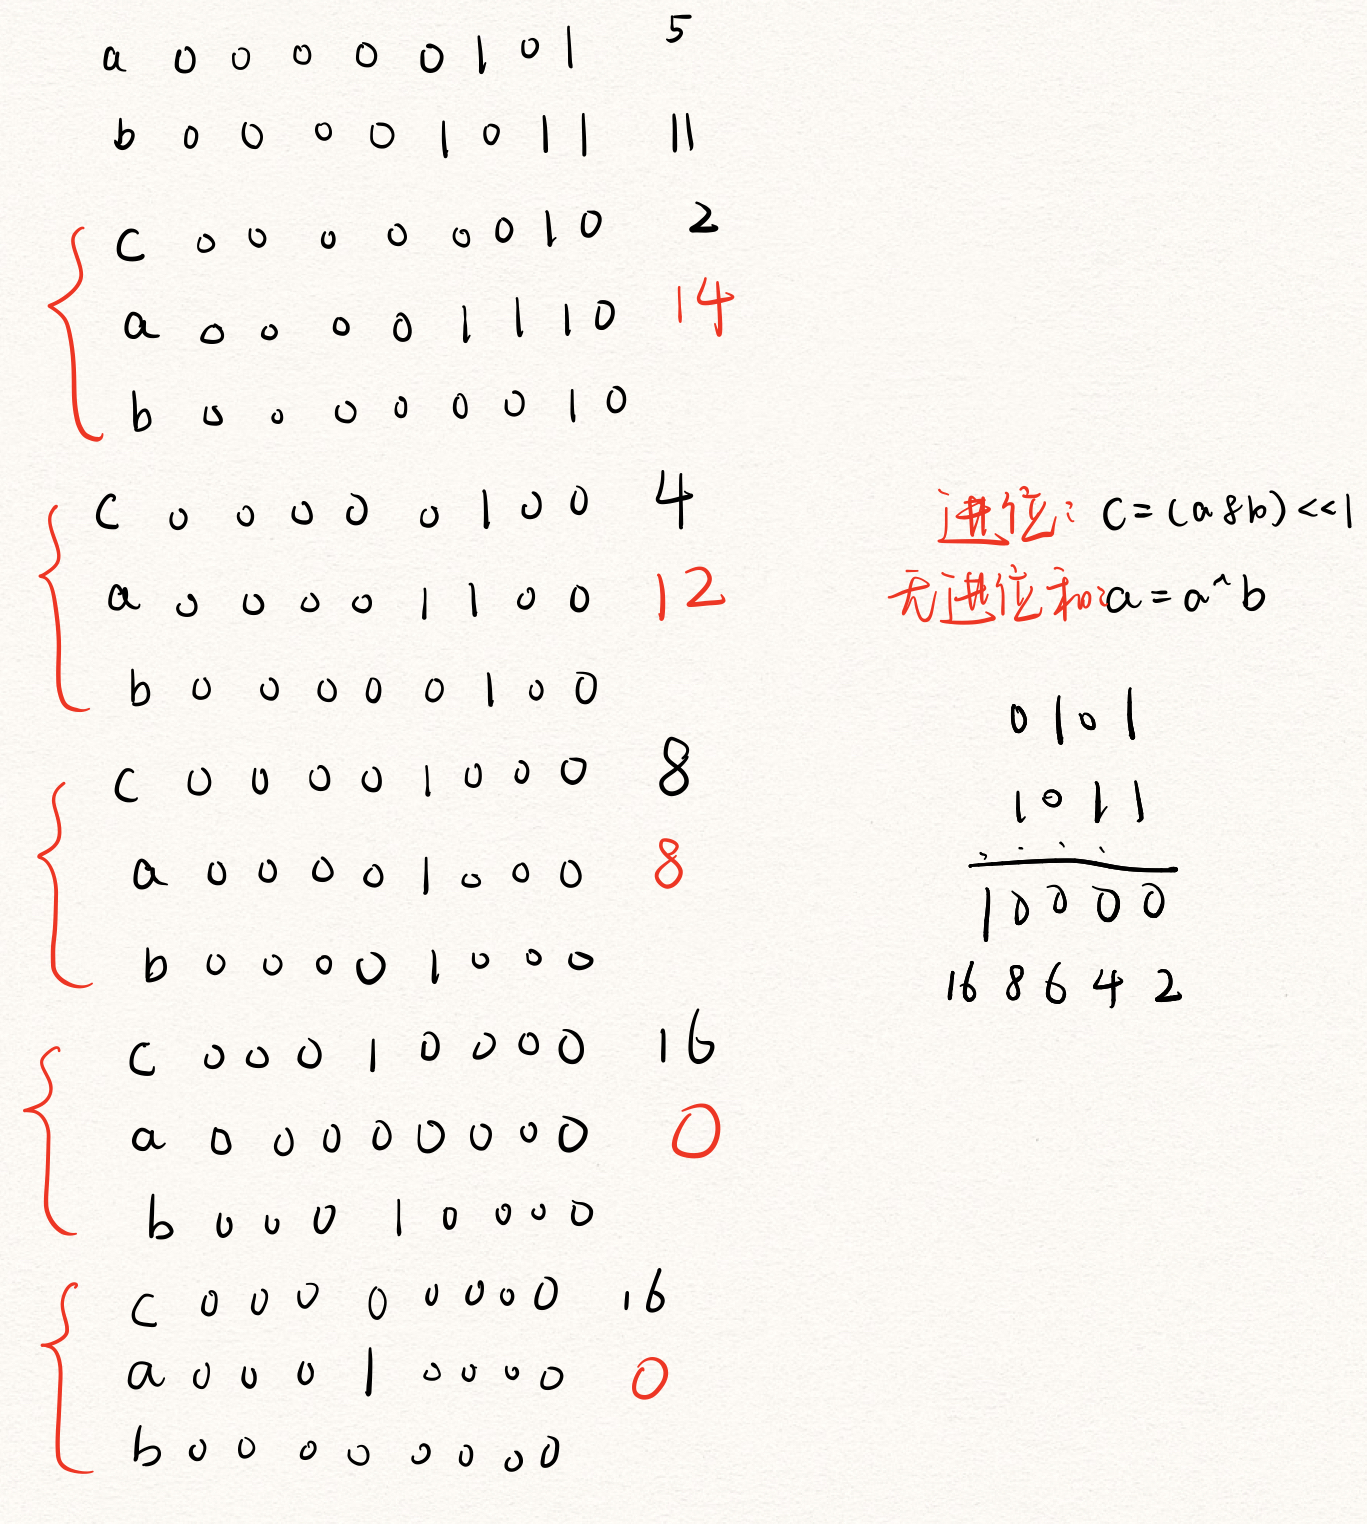 a 0 0 0 0 0 1 0 1 5
b 0 0 0 0 1 0 1 1 11
c 0 0 0 0 0 0 1 0 2
a 0 0 0 0 1 1 1 0 14
b 0 0 0 0 0 0 1 0
c 0 0 0 0 0 1 0 0 4
a 0 0 0 0 1 1 0 0 12
b 0 0 0 0 0 1 0 0
c 0 0 0 0 1 0 0 0 8
a 0 0 0 0 1 0 0 0 8
b 0 0 0 0 1 0 0 0
c 0 0 0 1 0 0 0 0 16
a 0 0 0 0 0 0 0 0 0
b 0 0 0 1 0 0 0 0
c 0 0 0 0 0 0 0 0 16
a 0 0 0 1 0 0 0 0 0
b 0 0 0 0 0 0 0 0
进位: c = (a & b) << 1
无进位和: a = a ^ b
0 1 0 1
1 0 1 1
1 0 0 0 0
16 8 6 4 2